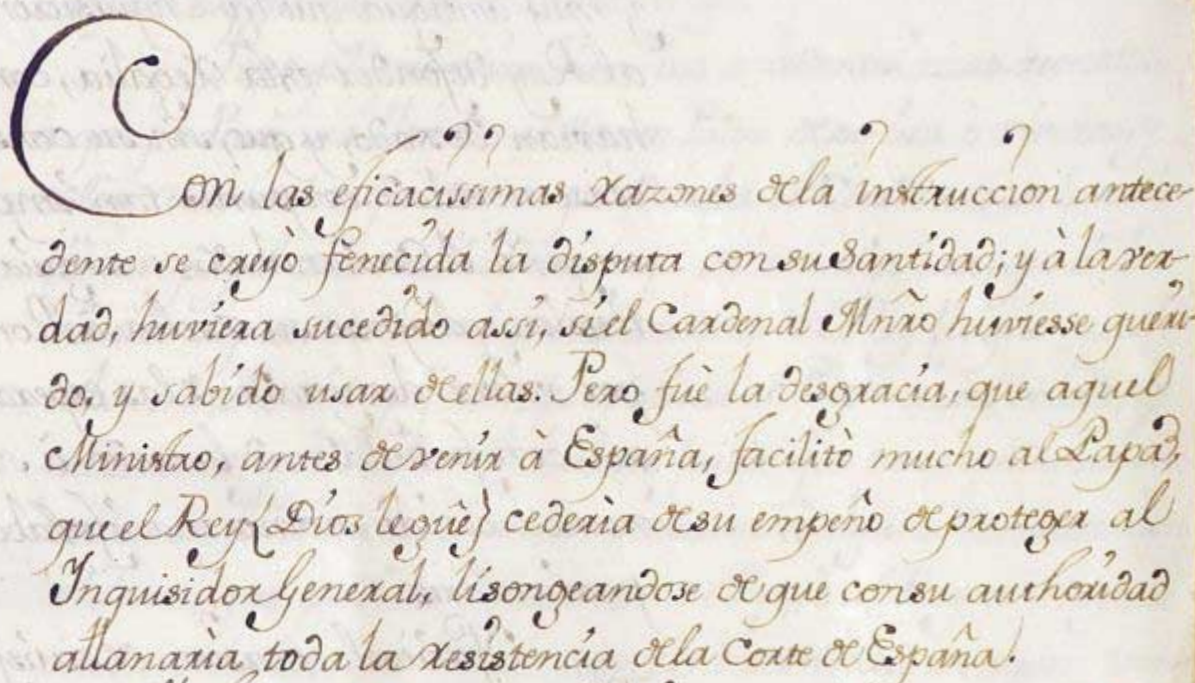 Con las eficacissimas razones de la instruccion antece-
dente se creyò fenecida la disputa con su Santidad; y à la ver-
dad, huviera sucedido assi, si el Cardenal Mñro huviesse queri-
do, y sabido usar de ellas. Pero fuè la desgracia, que aquel
Ministro, antes de venir à España, facilitò mucho al Papa,
que el Rey (Dios le gûe) cederia de su empeño de proteger al
Inquisidor General, lisongeandose de que con su authoridad
allanaria toda la resistencia de la Corte de España.